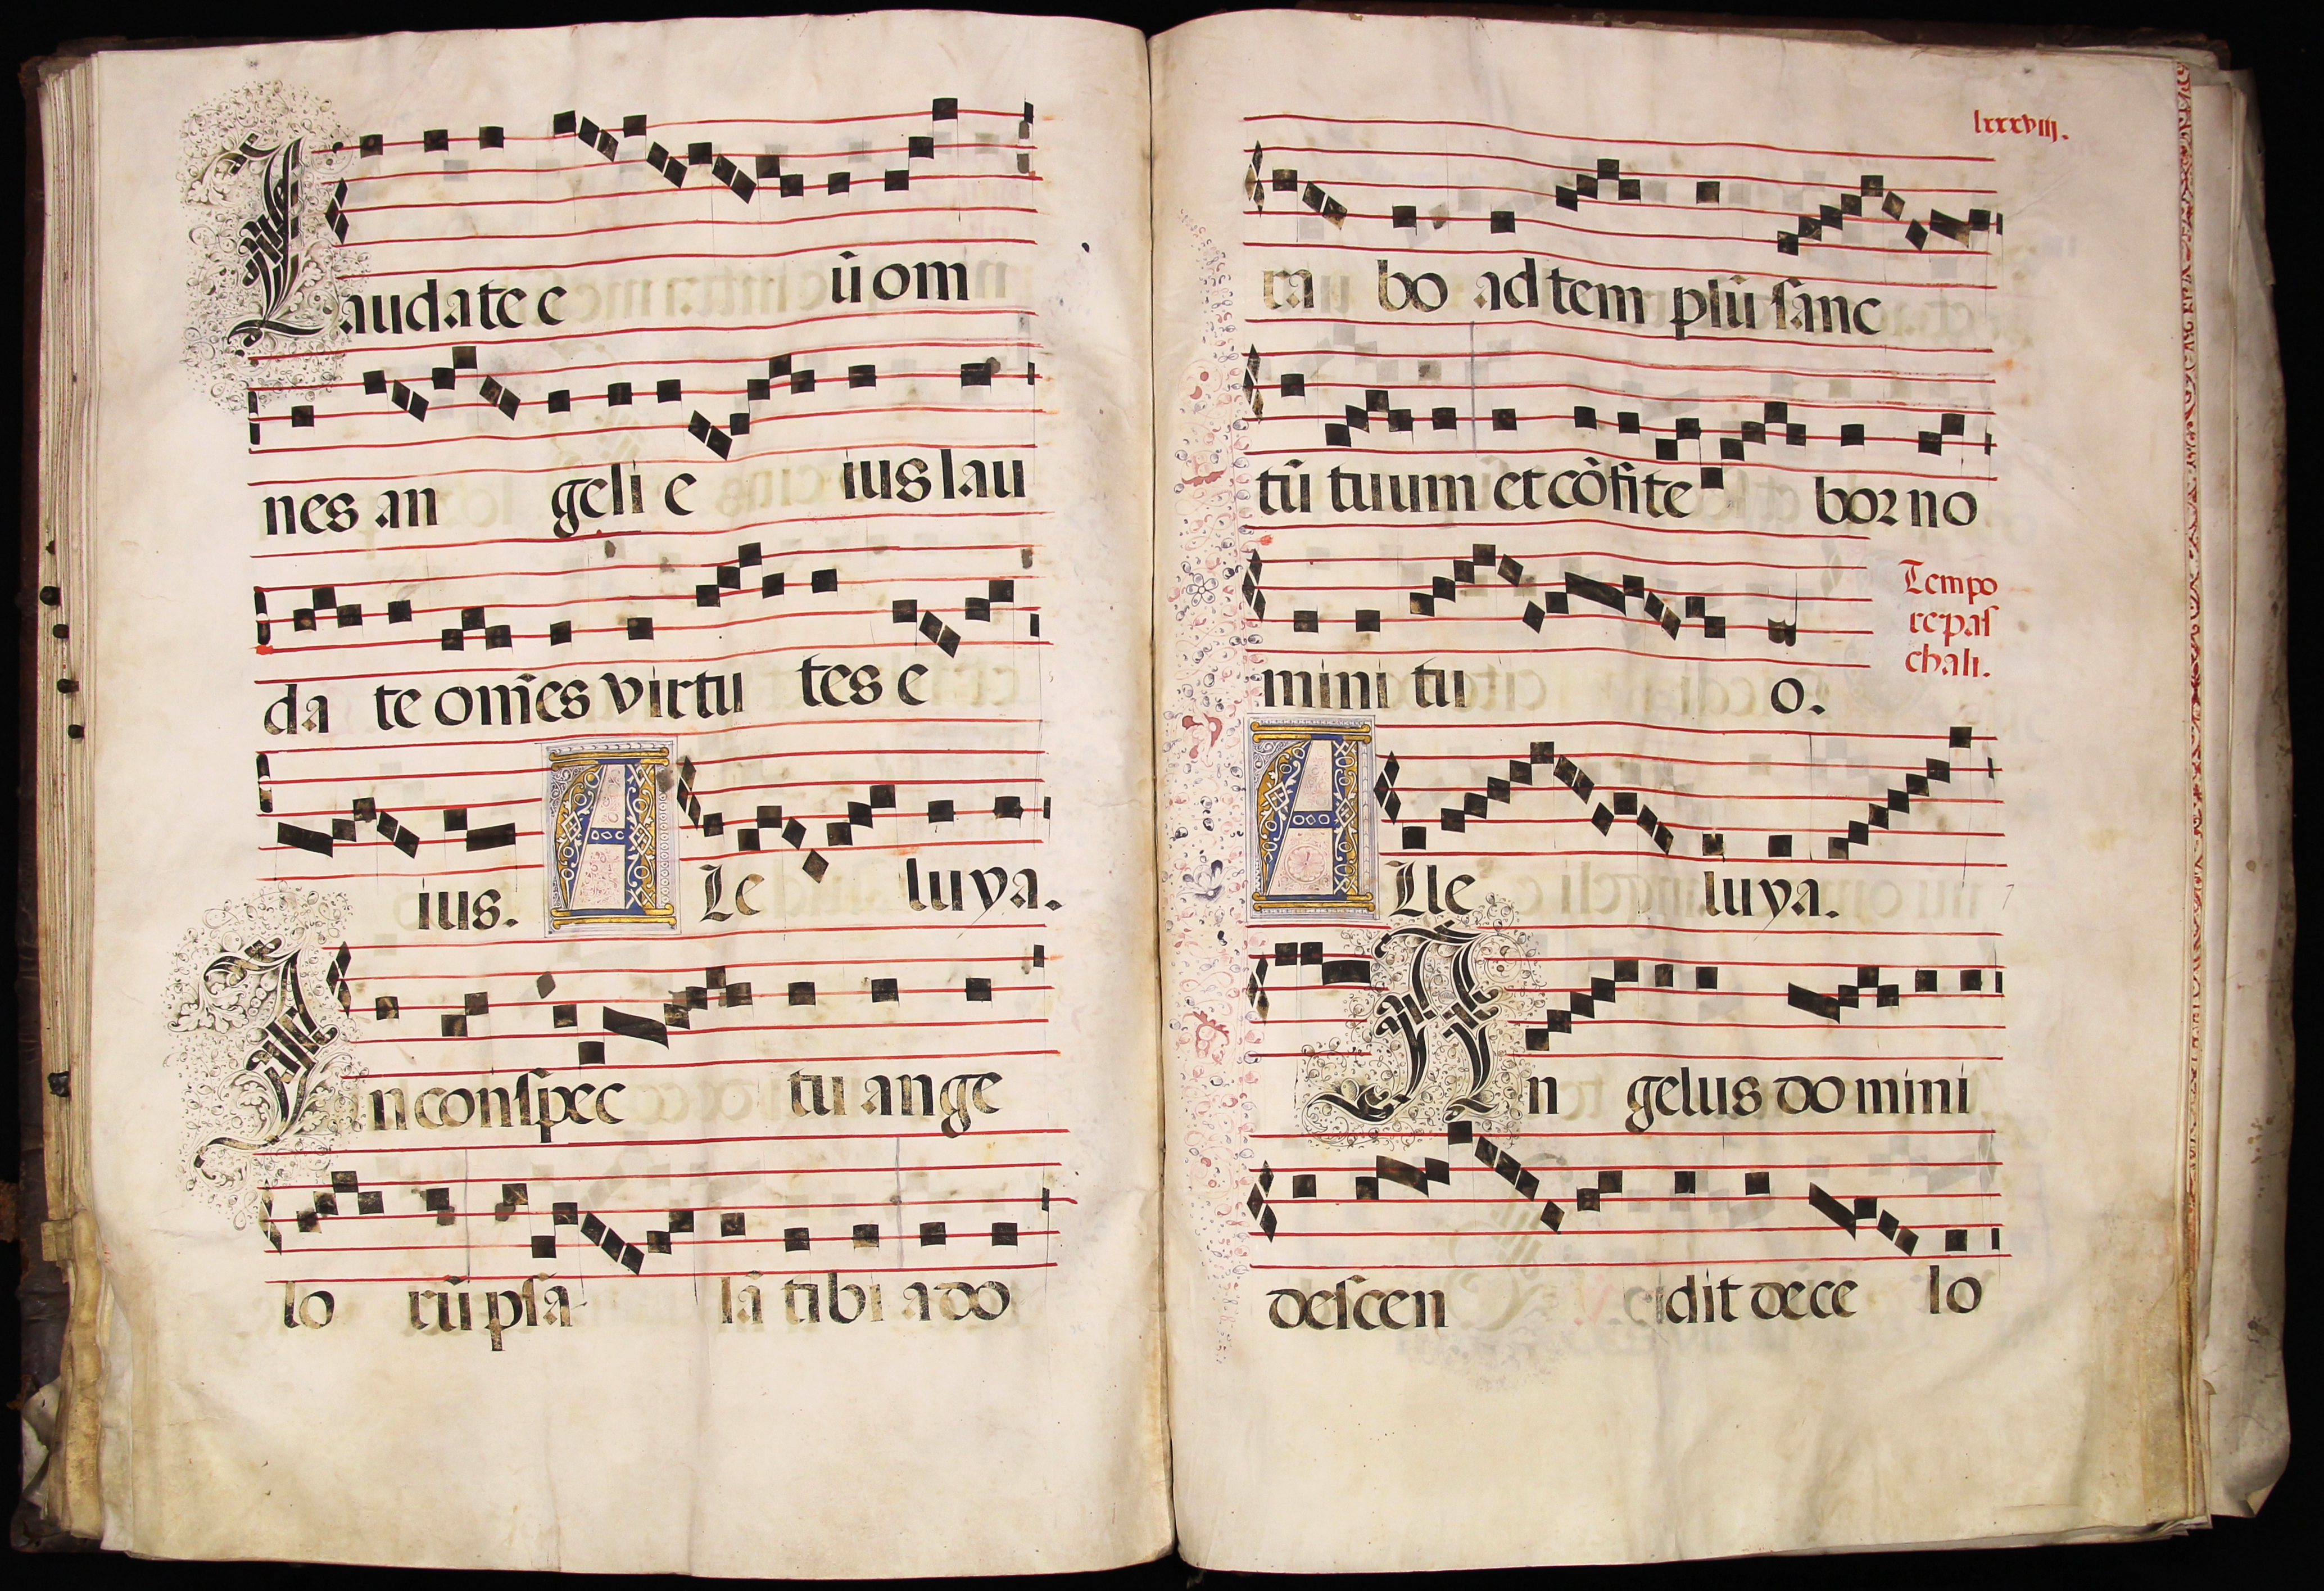 Laudate e ũ om
nes an geli e ius lau
da te om̃es virtu tes e
ius. A Le luya.
In conſpec tu ange
lo rũ pſa lã tibi ado
lxxxviij.
ra bo ad tem plũ ſanc
tũ tuum et cõfite bor no
mini tu o.
Tempo
re paſ
chali.
A Lle luya.
An gelus domini
deſcen dit de ce lo